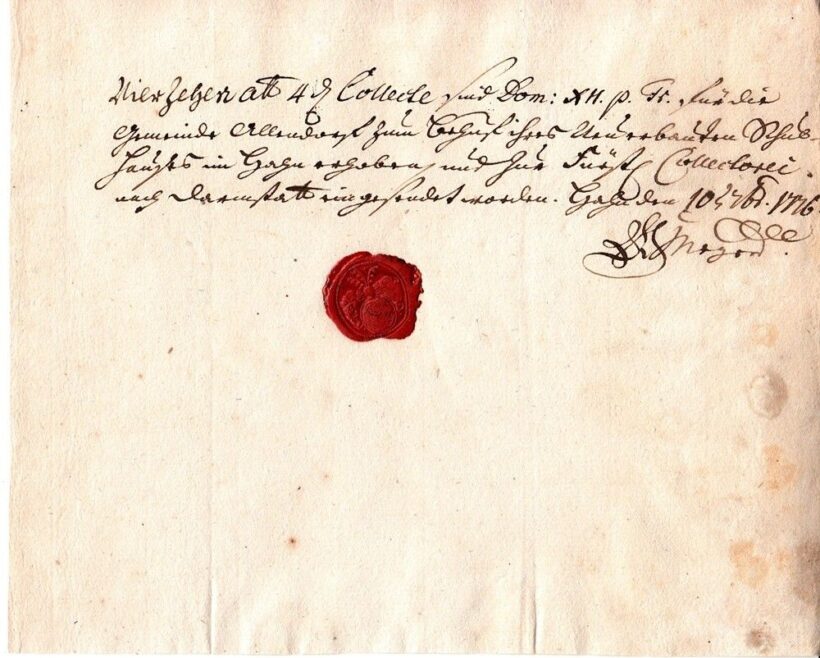 Vierzehen alb 4 ₰ Collecte sind Dom: XII. p. Tr. für die
Gemeinde Allendorf zum Behuf ihres Neuerbauten Schul-
hauses im Hahn erhoben, und zur Fürstl Collectorei
nach Darmstatt eingesendet worden. Hahn den 10 7br. 1776.
Meyer